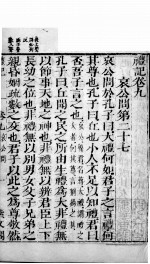 禮記卷九
哀公問第二十七
哀公問於孔子曰大禮何如君子之言禮何
其尊也孔子曰丘也小人不足以知禮君曰
否吾子言之也
孔子曰丘聞之民之所由生禮爲大非禮無
以節事天地之神也非禮無以辨君臣上下
長幼之位也非禮無以別男女父子兄弟之
親昏姻疏數之交也君子以此之爲尊敬然